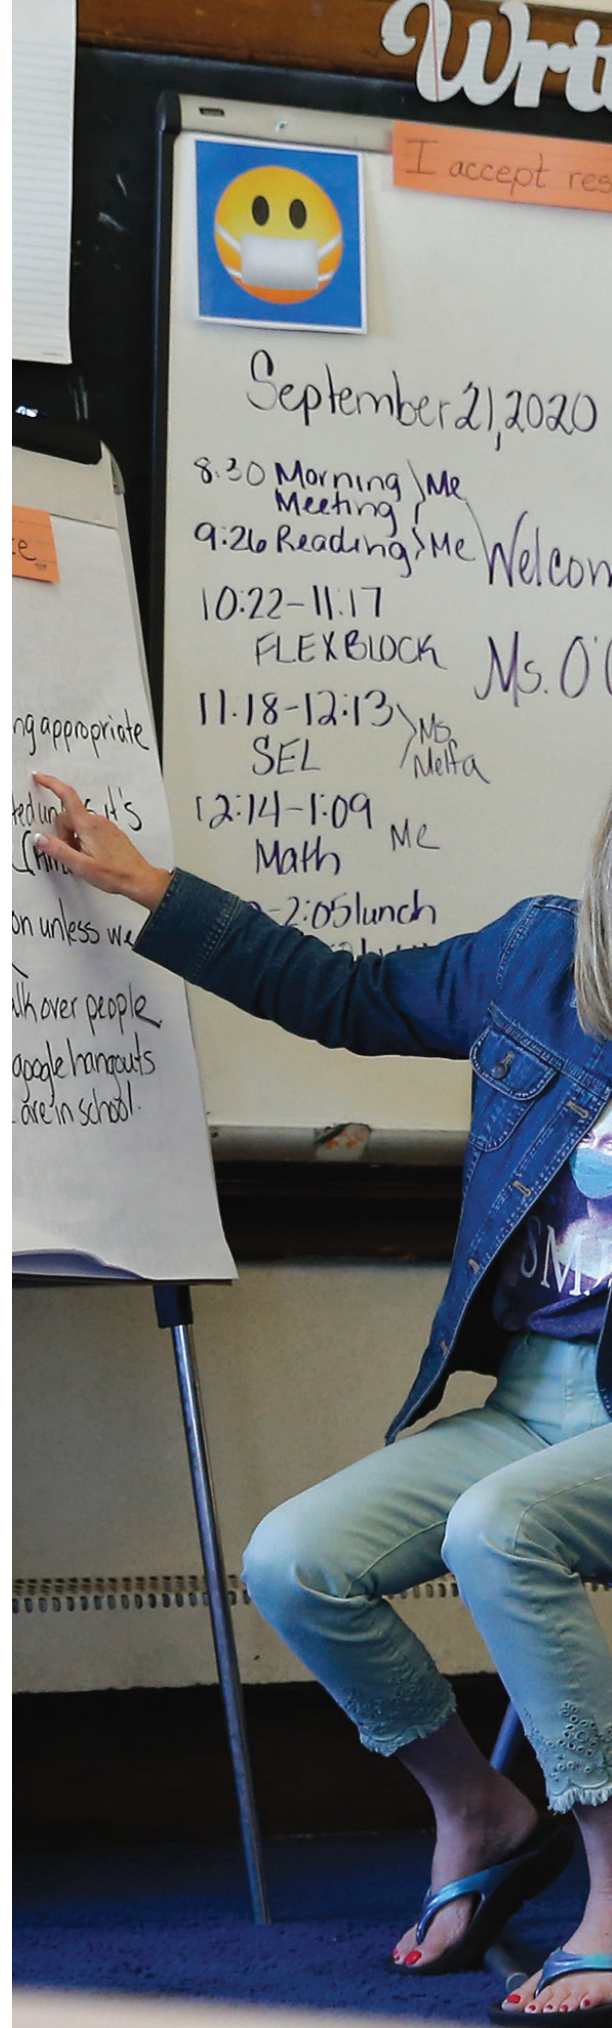 Writ
I accept res
September 21, 2020
8:30 Morning Me
Meeting
9:26 Reading Me
Welcom
10:22-11:17
FLEX BLOCK
Ms. O'
11:18-12:13 Ms.
SEL Melfa
12:14-1:09 Me
Math
-2:05 lunch
ce
ng appropriate
it's
on unless we
lk over people
google hangouts
are in school.
SMA